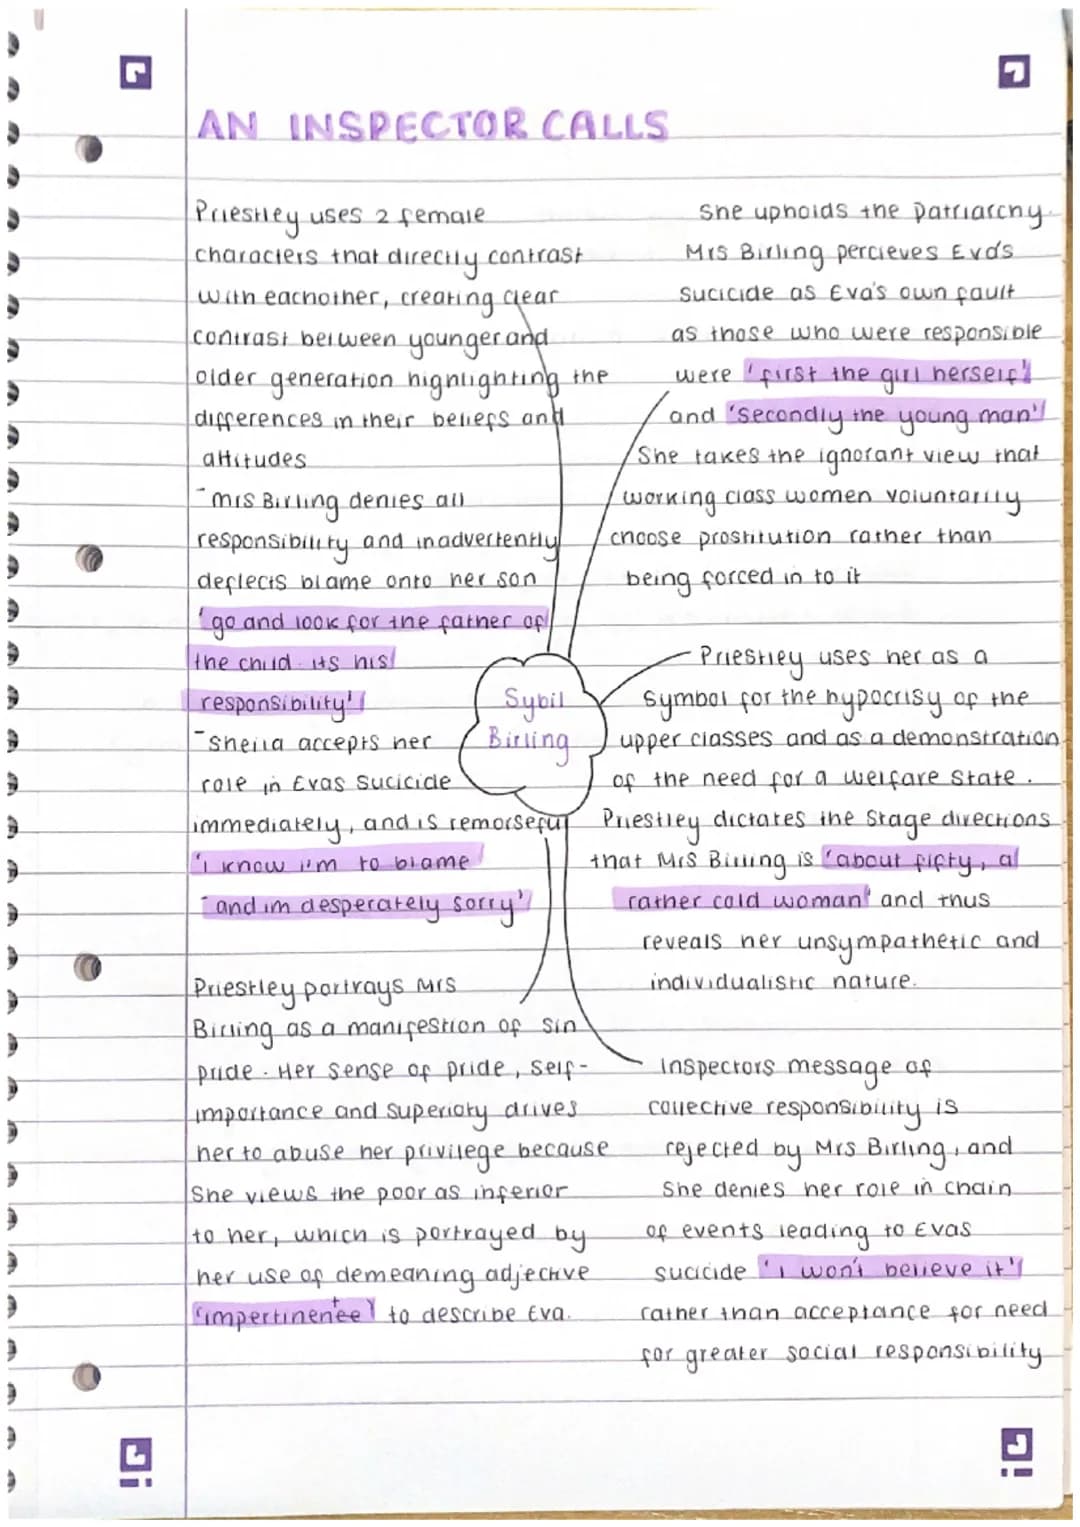 AN INSPECTOR CALLS
Priestley uses 2 female
characters that directly contrast
with eachother, creating clear
contrast between younger and
older generation highlighting the
differences in their beliefs and
attitudes
- Mrs Birling denies all
responsibility and inadvertently
deflects blame onto her son
'go and look for the father of
the child. its his
responsibility'
- Sheila accepts her
role in Evas Sucicide
immediately, and is remorseful
'i know i'm to blame
- and im desperately sorry'
Priestley portrays Mrs
Birling as a manifestion of sin
pride. Her sense of pride, self-
importance and superioty drives
her to abuse her privilege because
She views the poor as inferior
to her, which is portrayed by
her use of demeaning adjective
'impertinent' to describe Eva.
She upholds the Patriarchy.
Mrs Birling percieves Eva's
Sucicide as Eva's own fault
as those who were responsible
were 'first the girl herself'
and 'secondly the young man'
She takes the ignorant view that
working class women voluntarily
choose prostitution rather than
being forced in to it
Sybil
Birling
Priestley uses her as a
Symbol for the hypocrisy of the
upper classes and as a demonstration
of the need for a welfare State.
Priestley dictates the Stage directions
that Mrs Birling is 'about fifty, a
rather cold woman' and thus
reveals her unsympathetic and
individualistic nature.
Inspectors message of
collective responsibility is
rejected by Mrs Birling, and
She denies her role in chain
of events leading to Evas
sucicide 'i won't believe it'
rather than acceptance for need
for greater social responsibility